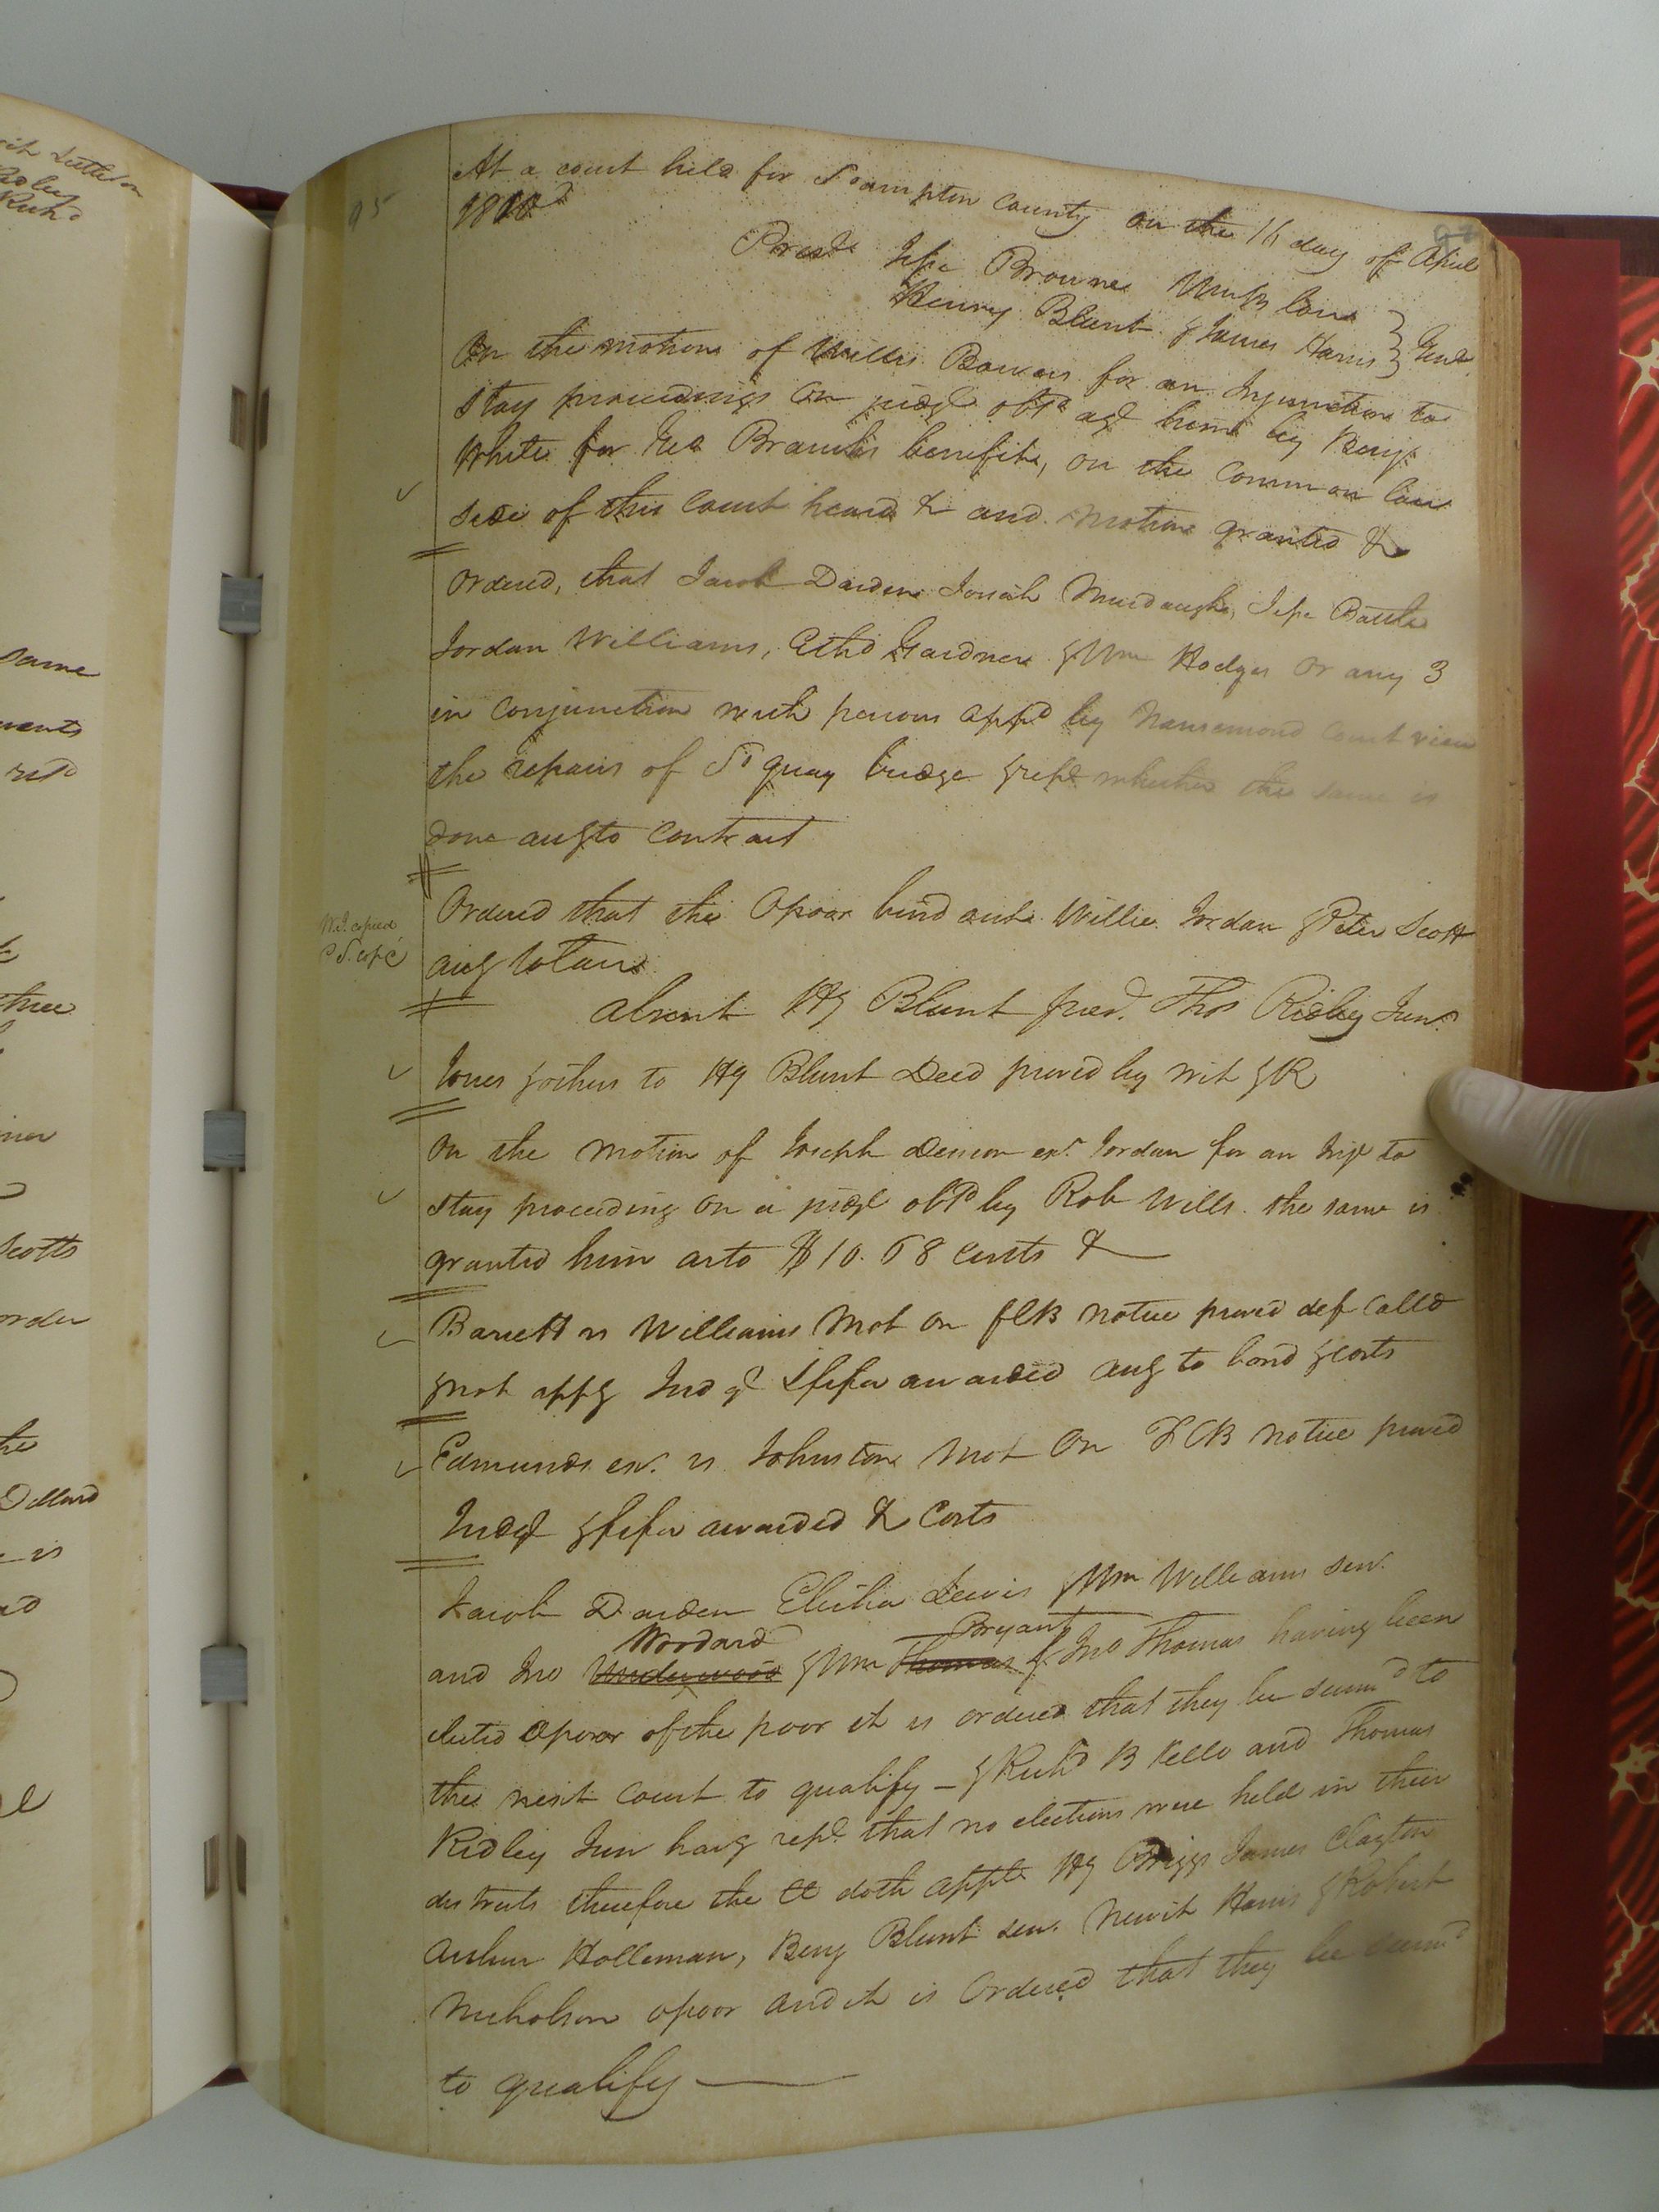 At a court held for S°ampton County on the 16 day of April
1810
Prest Jesse Browne
Henry Blunt & James Harris } Gent
On the motion of Willis Bowers for an Injunction to
stay proceedings on judgt obtd agt him by Benj
White for Geo Branch's benefit, on the common law
side of this Court heard & and motion granted &
Ordered, that Jacob Darden Josiah Murdaugh, Jesse Battle
Jordan Williams, Ethd Gardner & Wm Hodges or any 3
in conjunction with persons appd by Nansemond Court view
the repairs of S° quay bridge & rept whether the same is
done accg to contract
Ordered that the Opoor bind out Willie Jordan & Peter Scott
accg to law
absent Hy Blunt pres. Thos Ridley Junr
Jones & others to Hy Blunt Deed proved by wit & R
On the motion of Joseph Denson exr Jordan for an Inj to
stay proceeding on a judgt obtd by Rob Wills the same is
granted him as to $10.68 cents &
Barrett vs Williams Mot on FCB notice proved def calld
& not appg Judgt & fifa awarded accg to bond & costs
Edmunds exr. vs Johnston Mot on FCB notice proved
Judgt & fifa awarded & Costs
Jacob Darden Elisha Lewis & Wm Williams senr.
Woodard Bryant
and Jno Underwood & Wm Thomas & Jno Thomas having been
elected Opoor of the poor it is ordered that they be summd to
the next court to qualify — & Richd B Kello and Thomas
Ridley Jun havg rept that no elections were held in their
districts therefore the Ct doth appt Hy Briggs James Clayton
Arthur Holleman, Benj Blunt sen. Newit Harris & Robert
Nicholson opoor and it is Ordered that they be summd
to qualify —
95
Wj. copied
PS. copd
same
Scotts
order
is